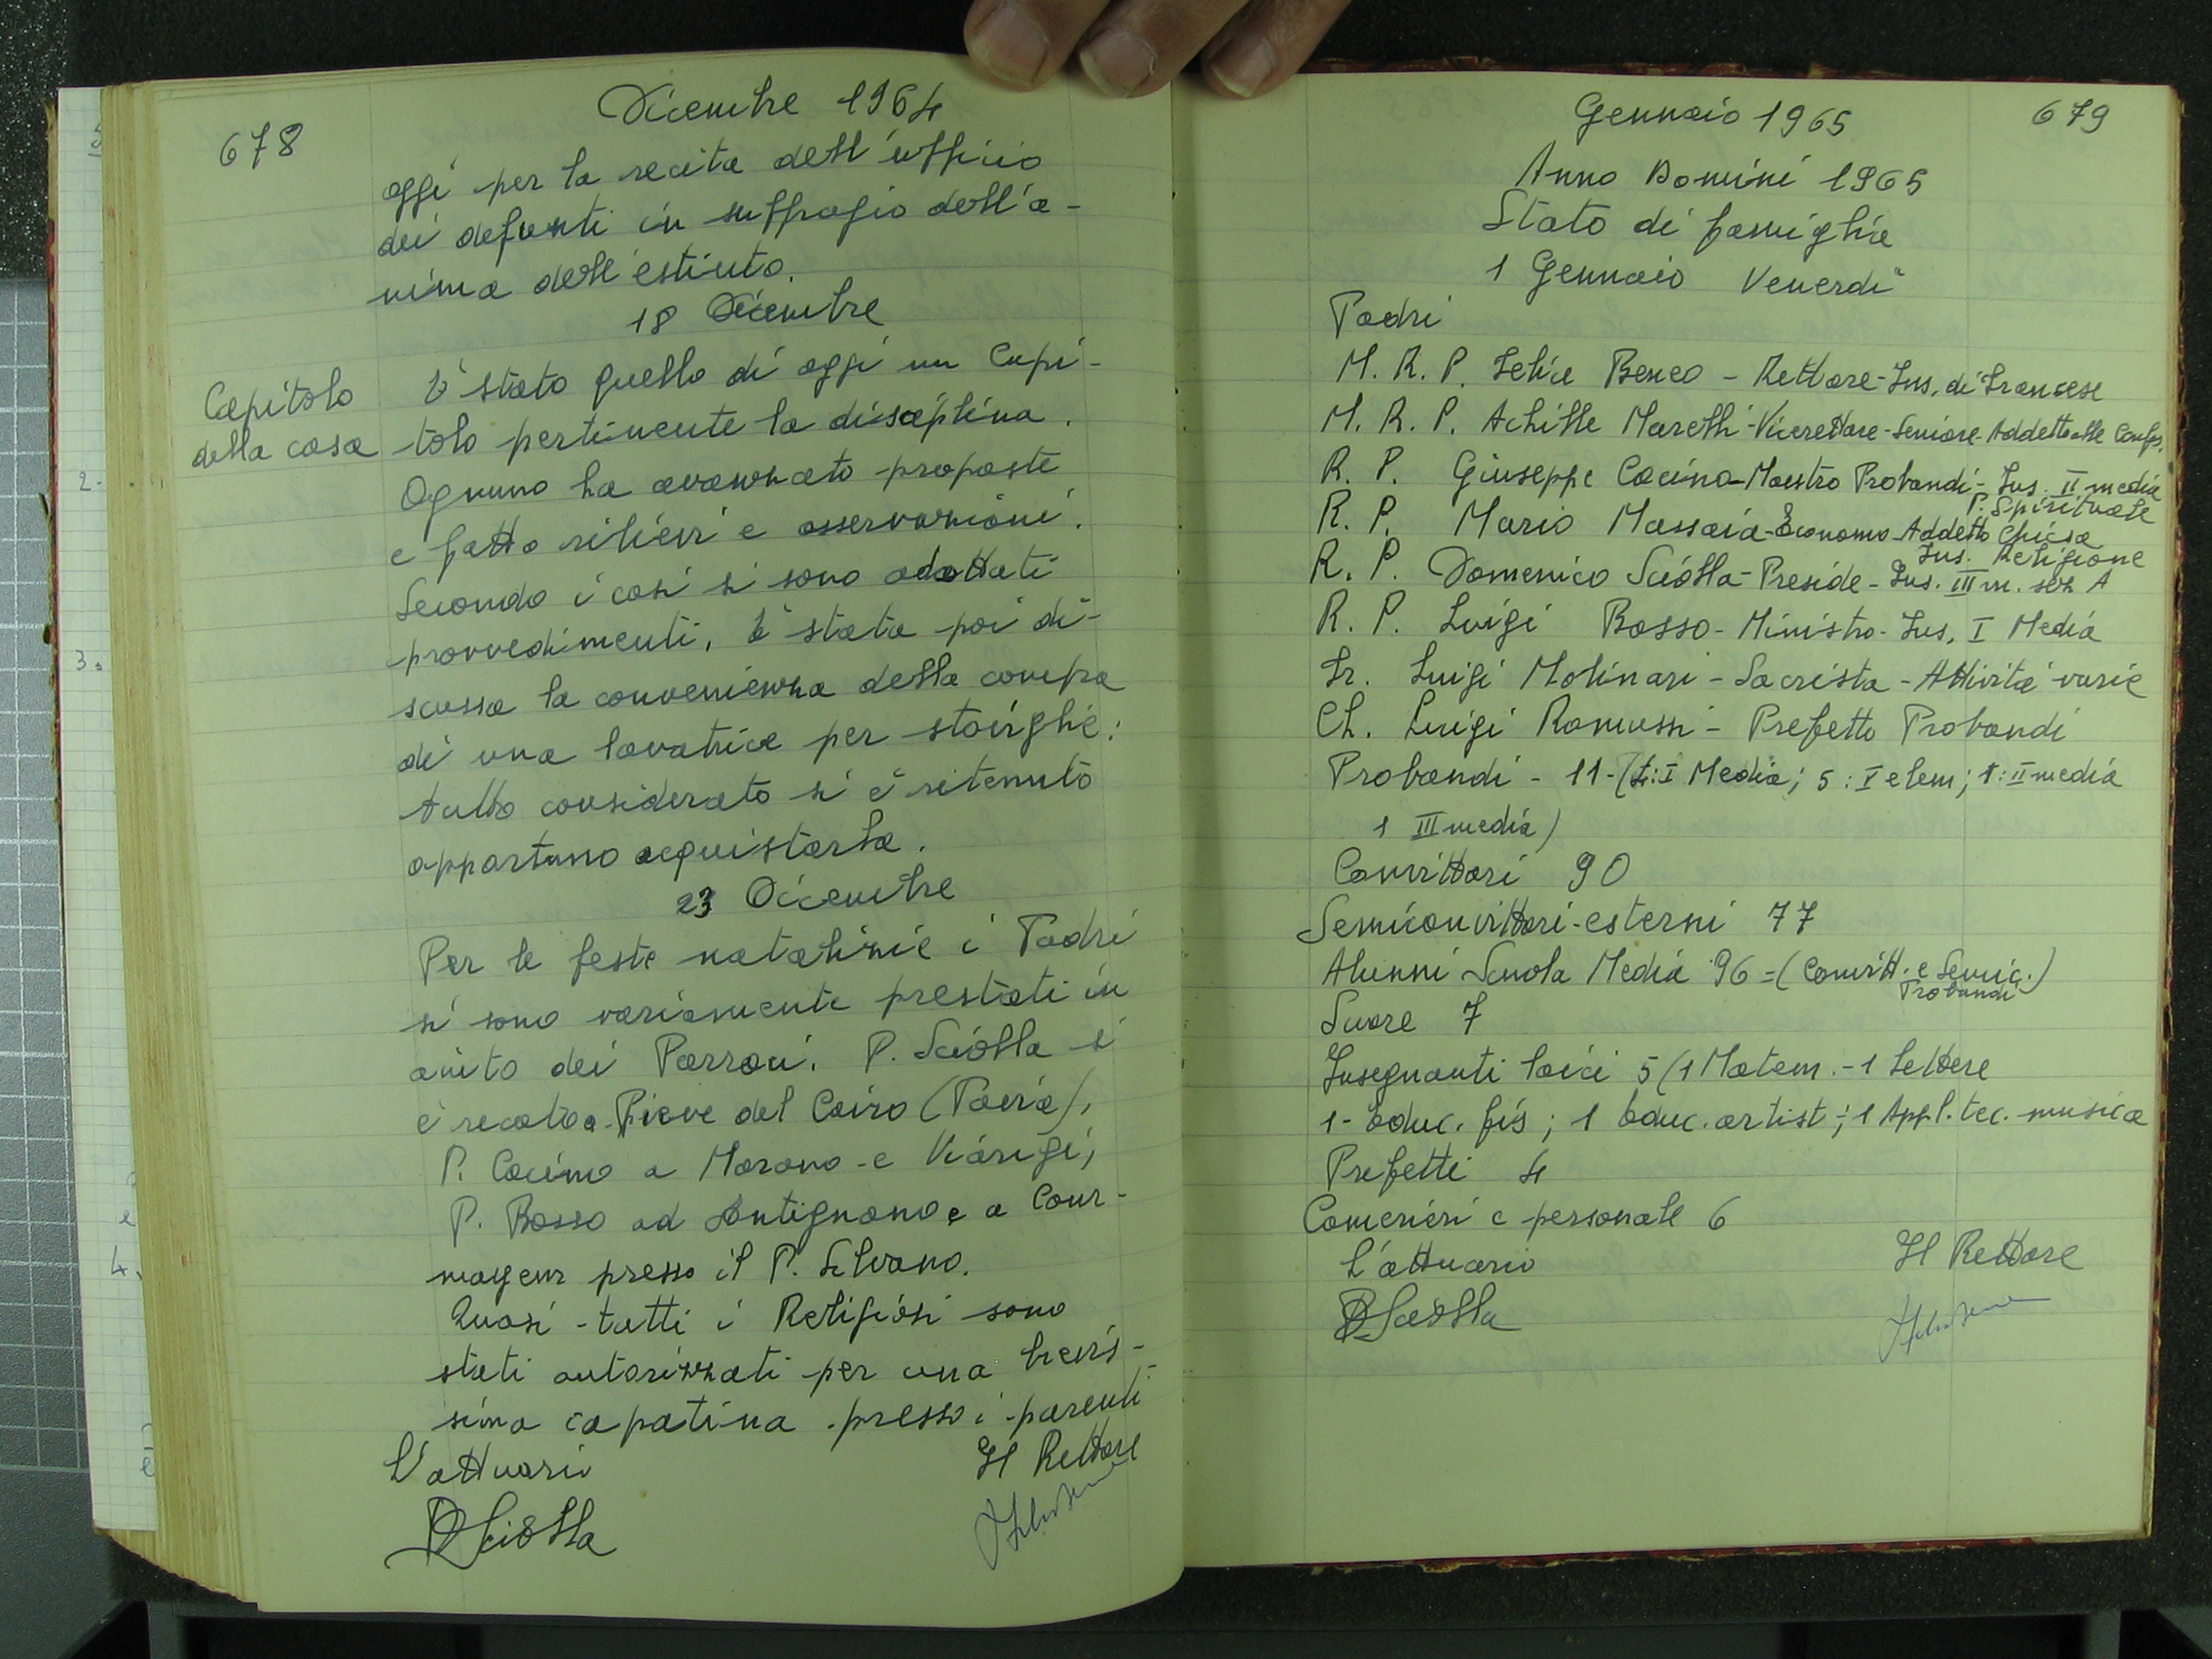 678
Dicembre 1964
oggi per la recita dell'ufficio
dei defunti in suffragio dell'a-
nima dell'estinto.
18 Dicembre
Capitolo
della casa
È stato quello di oggi un Capi-
tolo pertinente la disciplina.
Ognuno ha avanzato proposte
e fatto rilievi e osservazioni.
Secondo i casi si sono adottati
provvedimenti. È stata poi di-
scussa la convenienza della compra
di una lavatrice per stoviglie:
tutto considerato si è ritenuto
opportuno acquistarla.
23 Dicembre
Per le feste natalizie i Padri
si sono variamente prestati in
aiuto dei Parroci. P. Sciolla si
è recato a Pieve del Cairo (Pavia),
P. Cocino a Morano e Viarigi,
P. Bosso ad Antignano e a Cour-
mayeur presso il P. Silvano.
Quasi tutti i Religiosi sono
stati autorizzati per una brevis-
sima capatina presso i parenti
L'attuario
Il Rettore
D Sciolla
Gennaio 1965
679
Anno Domini 1965
Stato di famiglia
1 Gennaio Venerdì
Padri
M. R. P. Felice Beneo - Rettore - Ins. di Francese
M. R. P. Achille Marelli - Vicerettore - Seniore - Addetto alle Confes.
R. P. Giuseppe Cocino - Maestro Probandi - Ins. II media
P. Spirituale
R. P. Mario Massaia - Economo - Addetto Chiesa
Ins. Religione
R. P. Domenico Sciolla - Preside - Ins. III m. sez A
R. P. Luigi Bosso - Ministro - Ins. I Media
Fr. Luigi Molinari - Sacrista - Attività varie
Ch. Luigi Ramussi - Prefetto Probandi
Probandi - 11 - (4: I Media; 5: V elem; 1: II media
1 III media)
Convittori 90
Semiconvittori-esterni 77
Alunni Scuola Media 96 = (Convitt. e Semic.)
Probandi
Suore 7
Insegnanti laici 5 (1 Matem. - 1 Lettere
1 - Educ. fis; 1 Educ. artist; 1 Appl. tec. musica
Prefetti 4
Camerieri e personale 6
L'attuario
Il Rettore
D Sciolla